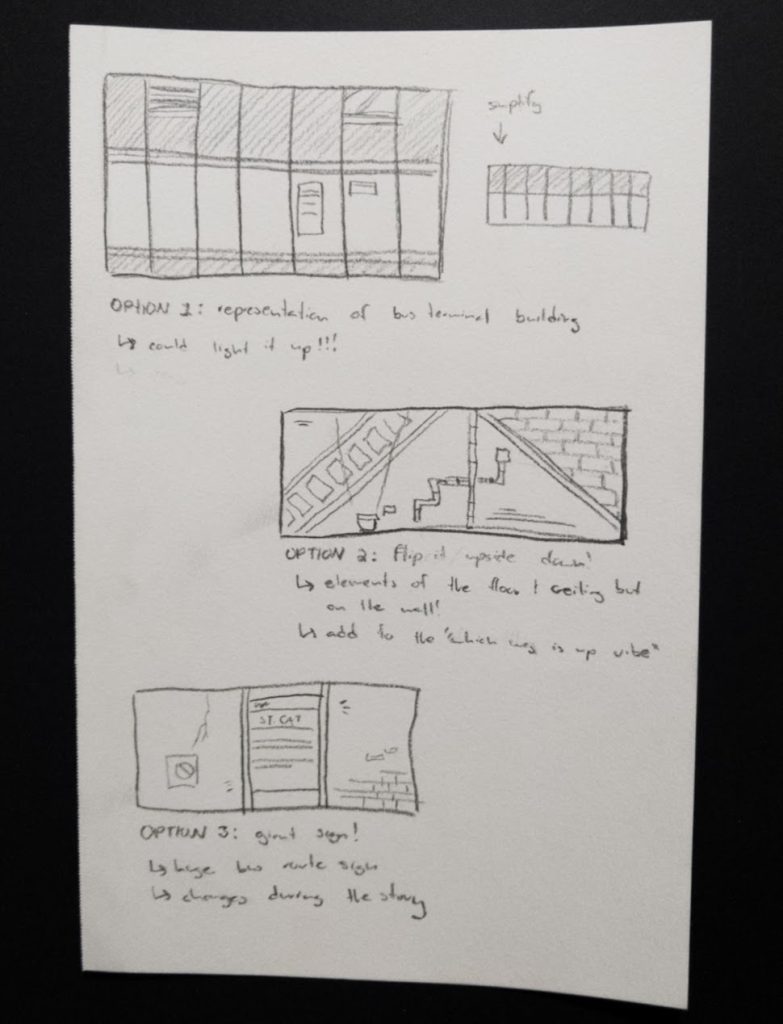 simplify
OPTION 1: representation of bus terminal building
↳ could light it up!!!
OPTION 2: flip it upside down!
↳ elements of the floor & ceiling but
on the wall!
↳ add to the "which way is up vibe"
ST. CAT
OPTION 3: giant sign!
↳ huge bus route sign
↳ changes during the story